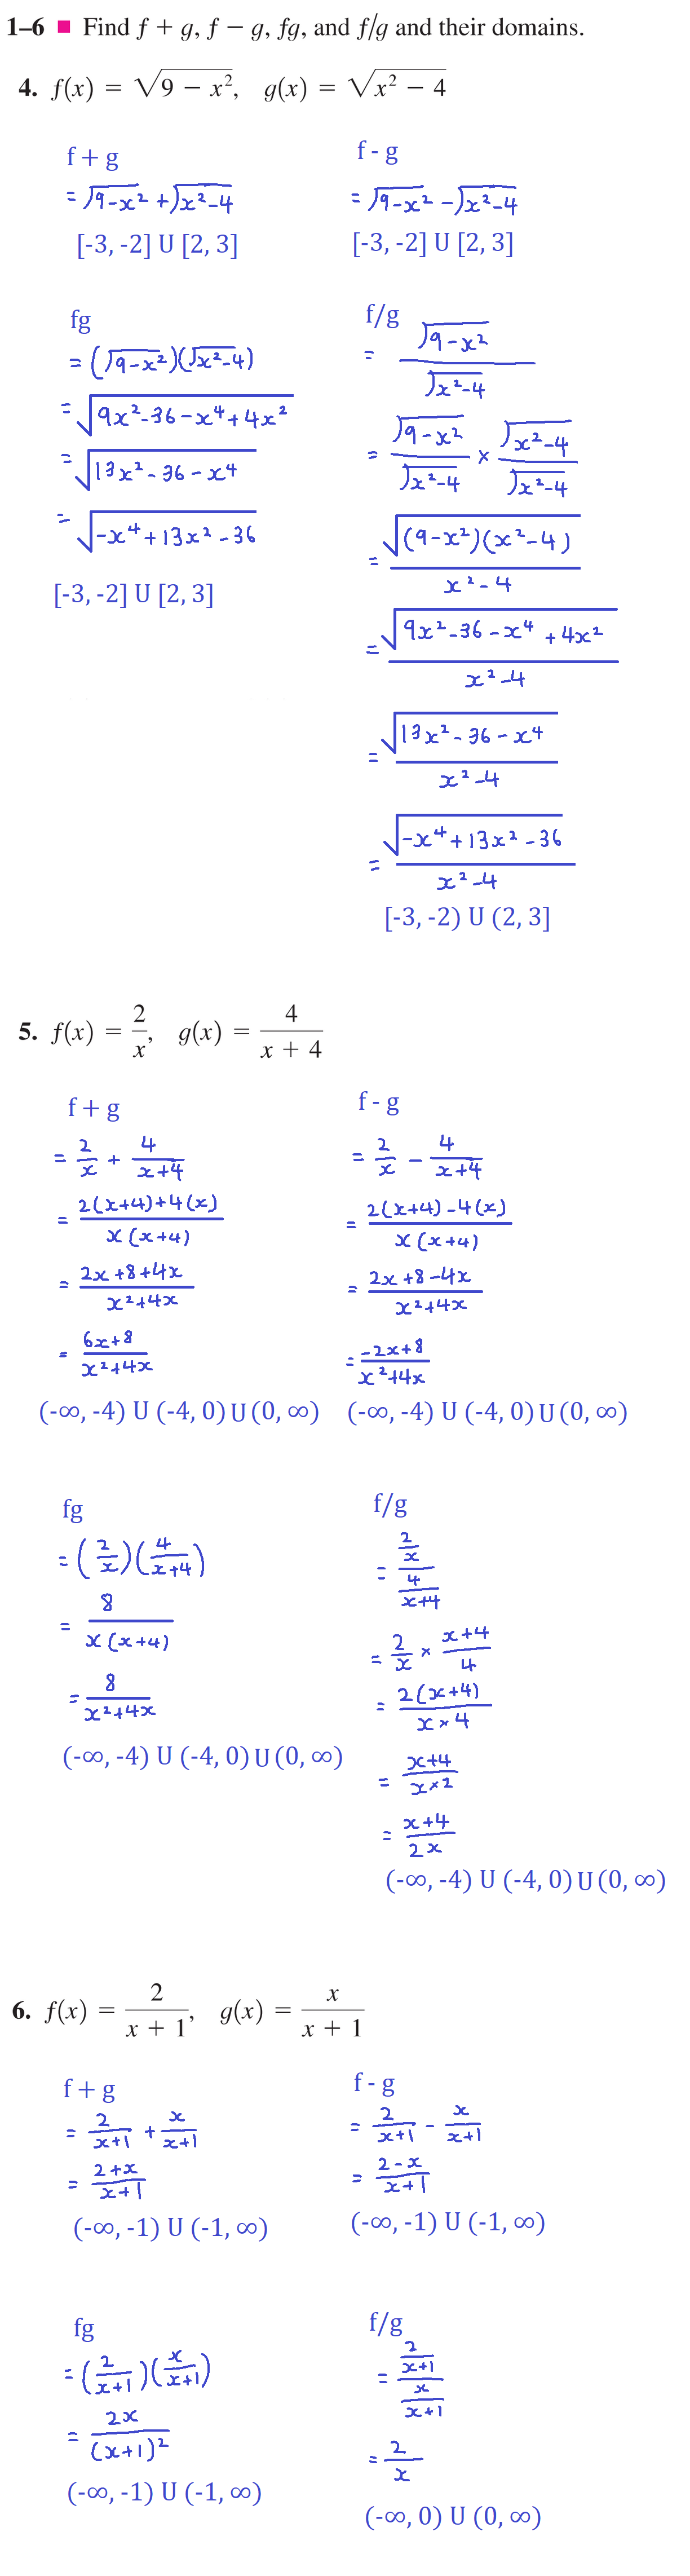 1–6 ■ Find f + g, f − g, fg, and f/g and their domains.
4. f(x) = √(9 − x²), g(x) = √(x² − 4)
f + g
= √(9−x²) + √(x²−4)
[-3, -2] U [2, 3]
f - g
= √(9−x²) − √(x²−4)
[-3, -2] U [2, 3]
fg
= (√(9−x²))(√(x²−4))
= √(9x²−36−x⁴+4x²)
= √(13x²−36−x⁴)
= √(−x⁴+13x²−36)
[-3, -2] U [2, 3]
f/g
= √(9−x²) / √(x²−4)
= √(9−x²)/√(x²−4) × √(x²−4)/√(x²−4)
= √((9−x²)(x²−4)) / (x²−4)
= √(9x²−36−x⁴+4x²) / (x²−4)
= √(13x²−36−x⁴) / (x²−4)
= √(−x⁴+13x²−36) / (x²−4)
[-3, -2) U (2, 3]
5. f(x) = 2/x, g(x) = 4/(x + 4)
f + g
= 2/x + 4/(x+4)
= (2(x+4)+4(x)) / (x(x+4))
= (2x+8+4x) / (x²+4x)
= (6x+8) / (x²+4x)
(-∞, -4) U (-4, 0) U (0, ∞)
f - g
= 2/x − 4/(x+4)
= (2(x+4)−4(x)) / (x(x+4))
= (2x+8−4x) / (x²+4x)
= (−2x+8) / (x²+4x)
(-∞, -4) U (-4, 0) U (0, ∞)
fg
= (2/x)(4/(x+4))
= 8 / (x(x+4))
= 8 / (x²+4x)
(-∞, -4) U (-4, 0) U (0, ∞)
f/g
= (2/x) / (4/(x+4))
= 2/x × (x+4)/4
= 2(x+4) / (x×4)
= (x+4) / (x×2)
= (x+4) / 2x
(-∞, -4) U (-4, 0) U (0, ∞)
6. f(x) = 2/(x + 1), g(x) = x/(x + 1)
f + g
= 2/(x+1) + x/(x+1)
= (2+x)/(x+1)
(-∞, -1) U (-1, ∞)
f - g
= 2/(x+1) − x/(x+1)
= (2−x)/(x+1)
(-∞, -1) U (-1, ∞)
fg
= (2/(x+1))(x/(x+1))
= 2x / (x+1)²
(-∞, -1) U (-1, ∞)
f/g
= (2/(x+1)) / (x/(x+1))
= 2/x
(-∞, 0) U (0, ∞)